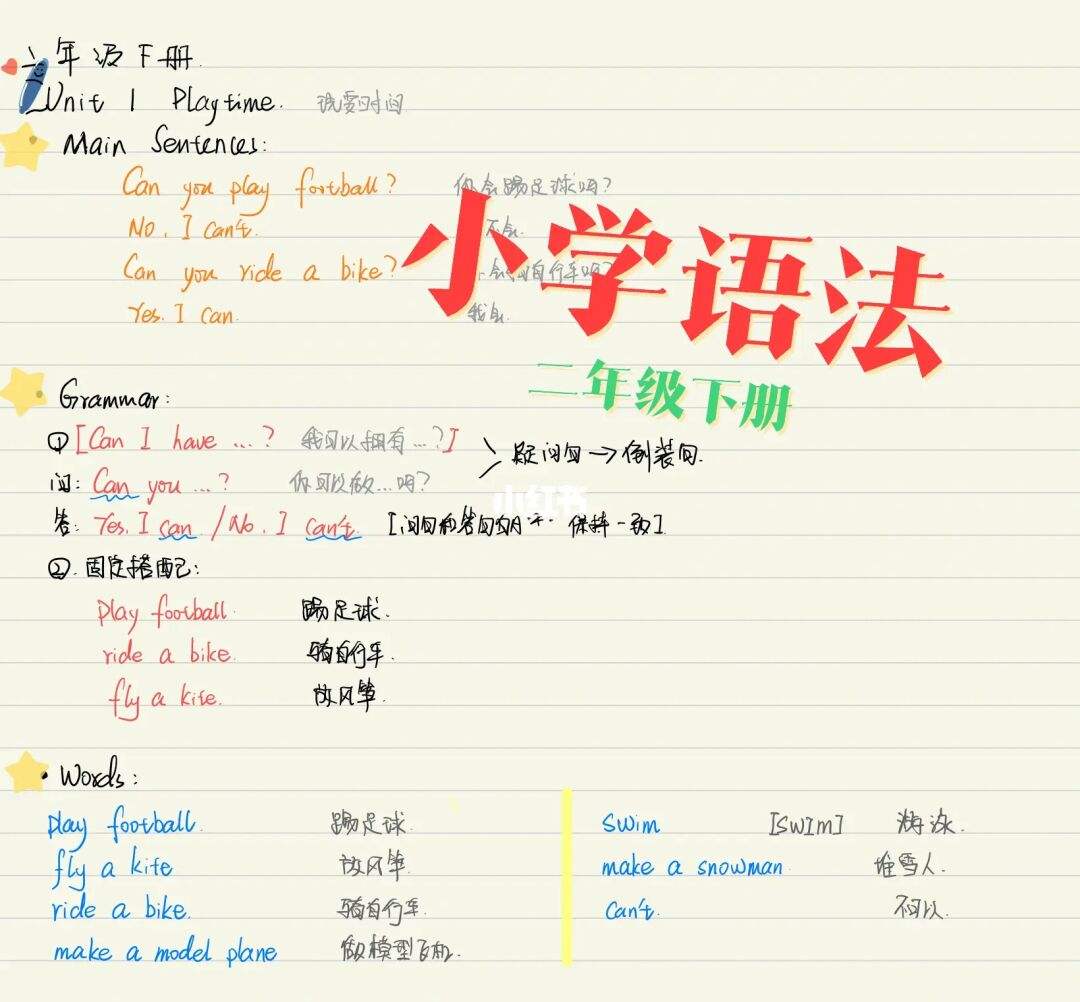 二年级下册.
Unit 1 Playtime. 玩耍时间
Main Sentences:
Can you play football? 你会踢足球吗?
No, I can't. 不会.
Can you ride a bike? 会骑自行车吗?
Yes. I can. 我会.
小学语法
二年级下册
Grammar:
① [Can I have ...? 我可以拥有...?]
问: Can you ...? 你可以做...吗?
疑问句→倒装句.
答: Yes, I can. / No, I can't. [问句和答句 保持一致]
小红书
②. 固定搭配:
play football. 踢足球.
ride a bike. 骑自行车.
fly a kite. 放风筝.
Words:
play football. 踢足球. swim [swIm] 游泳.
fly a kite 放风筝. make a snowman. 堆雪人.
ride a bike. 骑自行车. can't. 不可以.
make a model plane 做模型飞机.